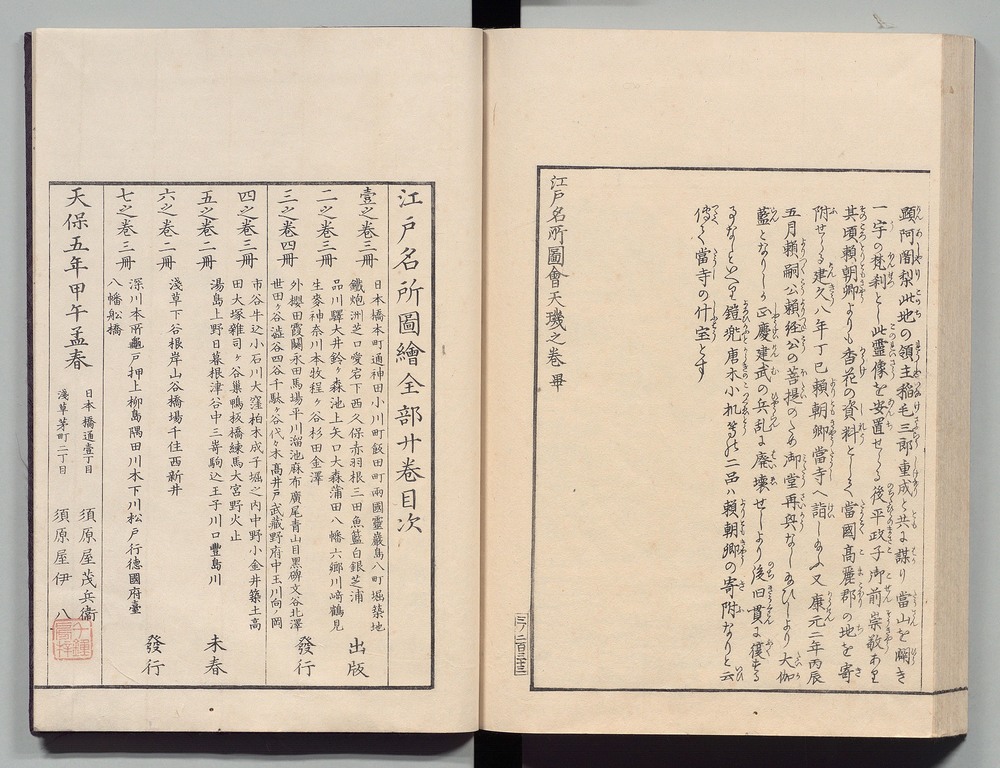 顕阿闍梨此地の領主稲毛三郎重成と共に謀り當山を闢き
一宇の梵刹とし此霊像を安置せる後平政子御前崇敬あり
其頃賴朝卿よりも香花の資料として當國高麗郡の地を寄
附せらる建久八年丁巳賴朝卿當寺へ詣しあふ又康元二年丙辰
五月賴嗣公賴経公の菩提のため御堂再興なしあひしより大伽
藍となりしが正慶建武の兵乱に廃壊せしより後旧貫に復する
事なしといへり鎧兜唐木小机等の二品ハ賴朝卿の寄附なりと云
傳へて當寺の什宝とす
江戸名所圖會天璣之巻 畢
三ノ二百三十三
江戸名所圖繪全部廿巻目次
壹之巻三冊 日本橋本町通神田小川町飯田町兩國靈巖島八町堀築地
鐵炮洲芝口愛宕下西久保赤羽根三田魚藍白銀芝浦
出版
二之巻三冊 品川驛大井鈴ヶ森池上矢口大森蒲田八幡六郷川崎鶴見
生麥神奈川本牧程ヶ谷杉田金澤
三之巻四冊 外櫻田霞關永田馬場平川溜池麻布廣尾青山目黒碑文谷北澤
世田ヶ谷澁谷四谷千駄ヶ谷代々木高井戸武藏野府中玉川向ノ岡
發行
四之巻三冊 市谷牛込小石川大窪柏木成子堀之内中野小金井築土高
田大塚雜司ヶ谷巣鴨板橋練馬大宮野火止
五之巻二冊 湯島上野日暮根津谷中三嵜駒込王子川口豐島川
未春
六之巻二冊 淺草下谷根岸山谷橋場千住西新井
七之巻三冊 深川本所龜戸押上柳島隅田川木下川松戸行德國府臺
八幡舩橋
發行
天保五年甲午孟春
日本橋通壹丁目 須原屋茂兵衞
淺草茅町二丁目 須原屋伊八